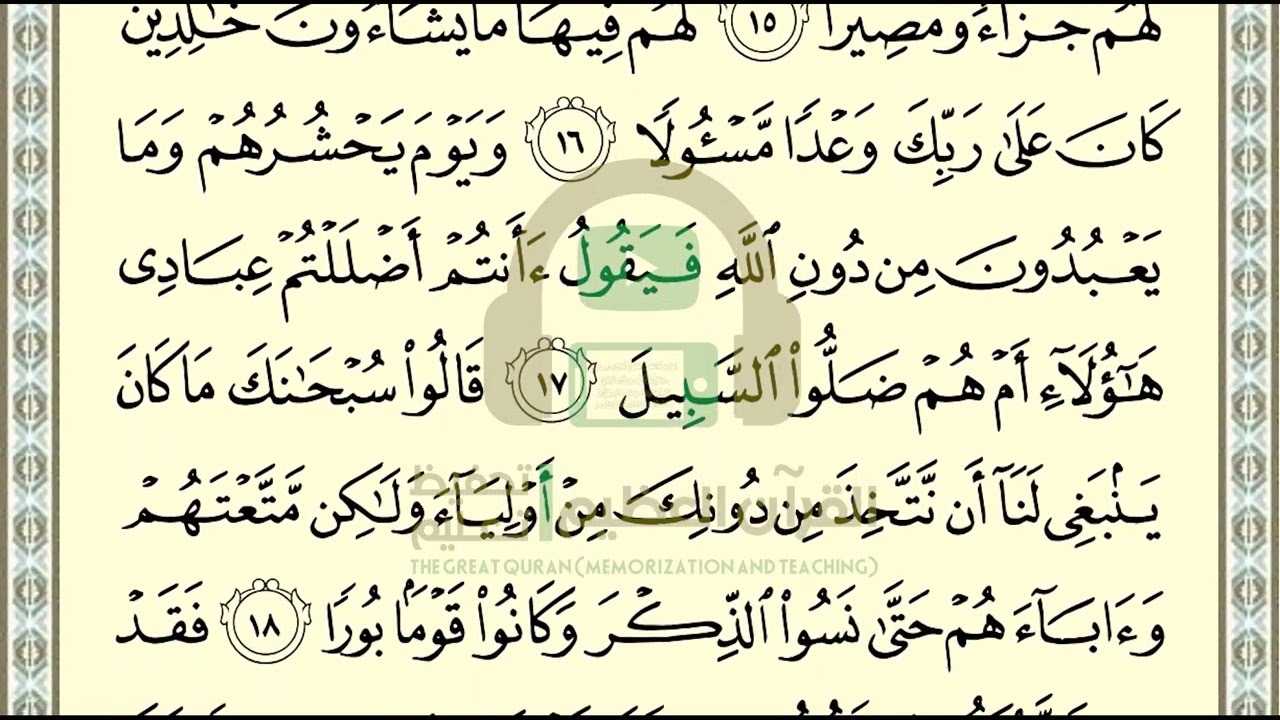 لَهُمْ جَزَآءً وَمَصِيرًا ١٥ لَّهُمْ فِيهَا مَا يَشَآءُونَ خَـٰلِدِينَ
كَانَ عَلَىٰ رَبِّكَ وَعْدًا مَّسْـُٔولًا ١٦ وَيَوْمَ يَحْشُرُهُمْ وَمَا
يَعْبُدُونَ مِن دُونِ ٱللَّهِ فَيَقُولُ ءَأَنتُمْ أَضْلَلْتُمْ عِبَادِى
هَـٰٓؤُلَآءِ أَمْ هُمْ ضَلُّوا۟ ٱلسَّبِيلَ ١٧ قَالُوا۟ سُبْحَـٰنَكَ مَا كَانَ
يَنۢبَغِى لَنَآ أَن نَّتَّخِذَ مِن دُونِكَ مِنْ أَوْلِيَآءَ وَلَـٰكِن مَّتَّعْتَهُمْ
القرآن العظيم تحفيظ وتعليم
THE GREAT QURAN (MEMORIZATION AND TEACHING)
وَءَابَآءَهُمْ حَتَّىٰ نَسُوا۟ ٱلذِّكْرَ وَكَانُوا۟ قَوْمًۢا بُورًا ١٨ فَقَدْ